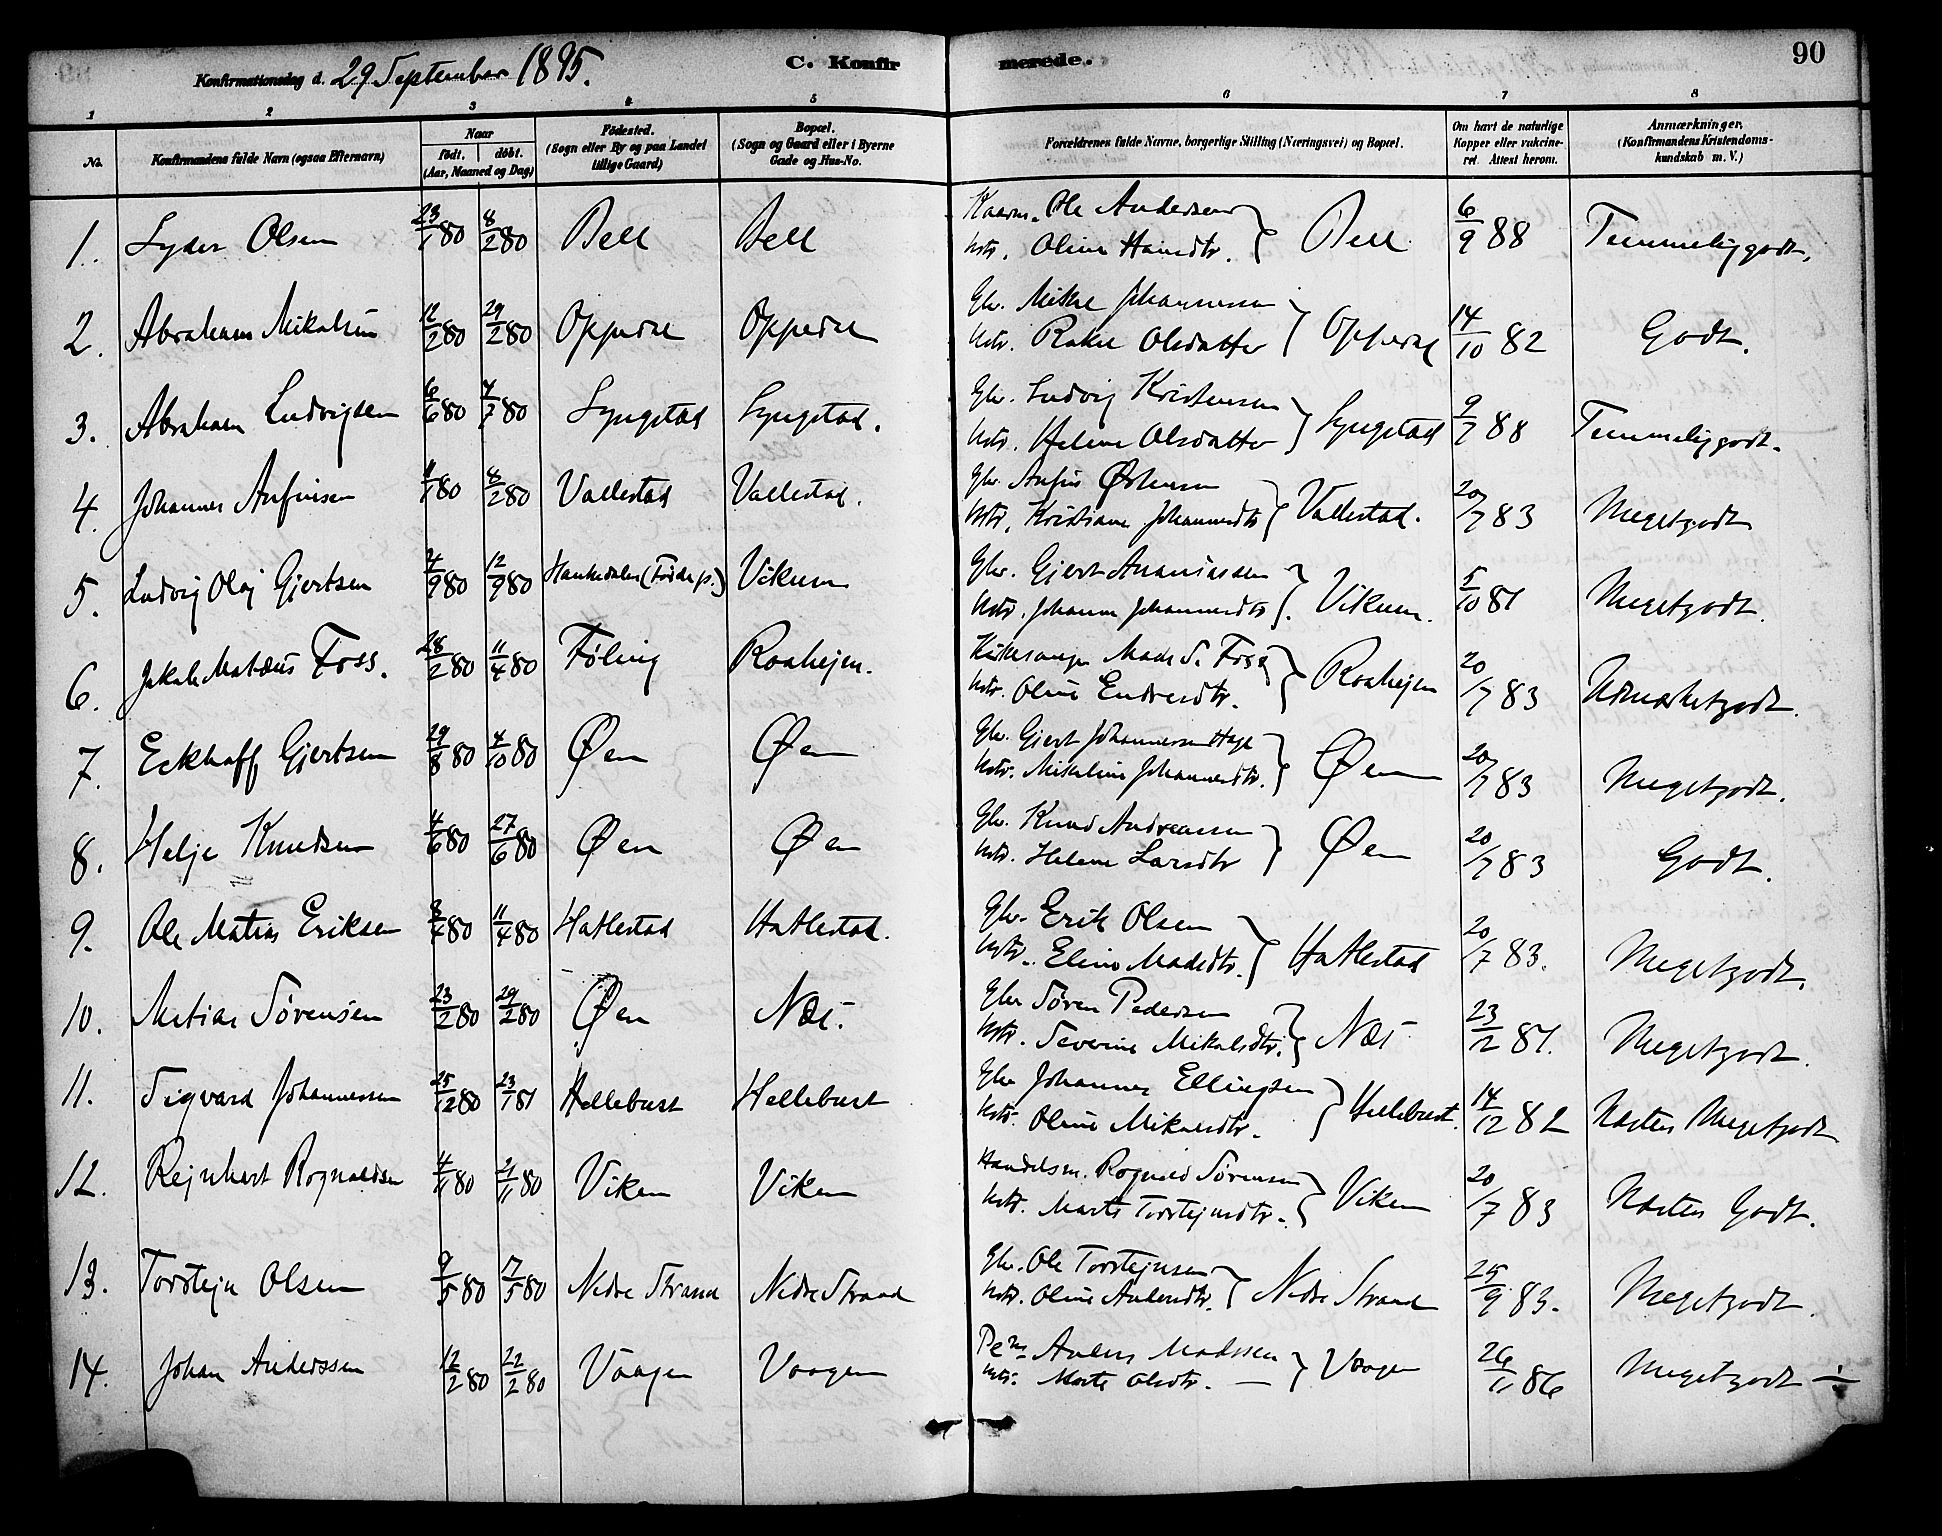 90
Konfirmationsdag d. 29 September 1895. C. Konfirmerede.
1 2 3 4 5 6 7 8
No. Konfirmandens fulde Navn (ogsaa Efternavn) Naar født. døbt. (Aar, Maaned og Dag) Fødested. (Sogn eller By og paa Landet tillige Gaard) Bopæl. (Sogn og Gaard eller i Byerne Gade og Hus-No. Forældrenes fulde Navne, borgerlige Stilling (Næringsvei) og Bopæl. Om havt de naturlige Kopper eller vakcineret. Attest herom. Anmærkninger, (Konfirmandens Kristendomskundskab m. V.)
1. Lyder Olsen 23/1 80 8/2 80 Bell Bell Kaarm. Ole Andersen Bell 6/9 88 Temmeliggodt.
Hstr. Oline Hansdtr.
2. Abraham Mikalsen 12/2 80 29/2 80 Oppedal Oppedal Gbr. Mikal Johannessen Oppedal 14/10 82 Godt.
Hstr. Rakel Olsdatter
3. Abraham Ludvigsen 6/6 80 4/7 80 Lyngstad Lyngstad. Gbr. Ludvig Kristensen Lyngstad 9/7 88 Temmeliggodt.
Hstr. Helene Olsdatter
4. Johannes Anfinsen /1 80 8/2 80 Vallestad Vallestad. Gbr. Anfin Østensen Vallestad. 20/7 83 Megetgodt
Hstr. Kristiane Johannesdtr
5. Ludvig Olaj Gjertsen 4/9 80 12/9 80 Haukedalen (Førde p.) Vikum Gbr. Gjert Ananiassen Vikum. 5/10 81 Megetgodt.
Hstr. Johanne Johannesdtr.
6. Jakob Matæus Foss. 28/2 80 11/4 80 Føling Raahejen. Kirkesanger Mads S. Foss Raahejen 20/7 83 Udmærketgodt.
Hstr. Oline Endresdtr.
7. Eckhoff Gjertsen 29/8 80 4/10 80 Øen Øen Gbr. Gjert Johannessen Hage Øen 20/7 83 Megetgodt.
Hstr. Mikaline Johannesdtr.
8. Helje Knudsen 4/6 80 27/6 80 Øen Øen Gbr. Knud Andreassen Øen 20/7 83 Godt.
Hstr. Helene Larsdtr
9. Ole Matias Eriksen /4 80 11/4 80 Hatlestad Hatlestad. Gbr. Erik Olsen Hatlestad 20/7 83. Megetgodt.
Hstr. Eline Madsdtr.
10. Matias Sørensen 23/2 80 29/2 80 Øen Næs. Gbr Søren Pedersen Næs 23/12 81. Megetgodt.
Hstr. Severine Mikalsdtr.
11. Sigvard Johannessen 25/12 80 23/1 81 Hellebust Hellebust Gbr Johannes Ellingsen Hellebust. 14/12 82 Næsten Megetgodt
Hstr. Oline Mikalsdtr.
12. Rejnhart Rognaldsen 4/11 80 21/11 80 Viken Viken Handelsm. Rognald Sørensen Viken 20/7 83 Næsten Godt.
Hstr. Marta Torstejnsdtr.
13. Torstejn Olsen 9/5 80 17/5 80 Nedre Strand Nedre Strand Gbr. Ole Torstejnsen Nedre Strand 25/9 83. Megetgodt.
Hstr. Oline Andersdtr.
14. Johan Anderssen 12/2 80 22/2 80 Vaagen Vaagen Anders Madssen Vaagen 26/11 86 Megetgodt ÷
Hstr. Marta Olsdtr. —